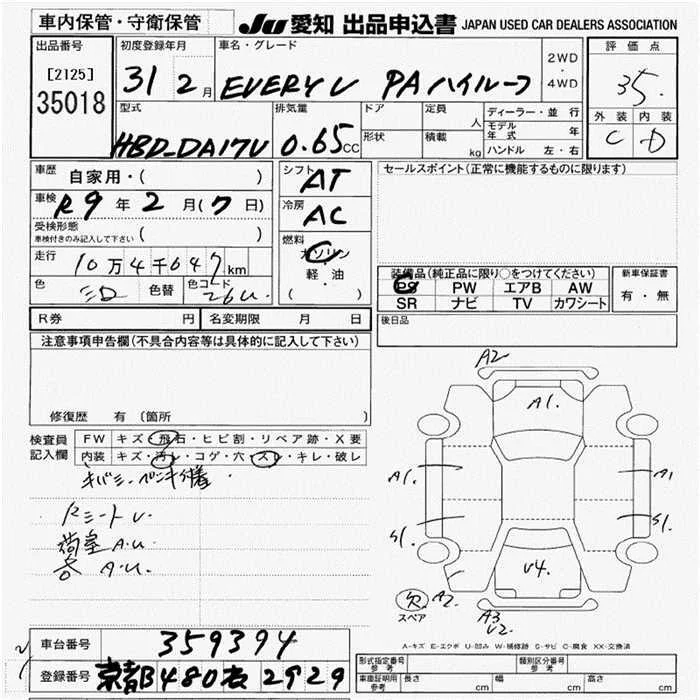 車内保管・守衛保管
JU 愛知 出品申込書 JAPAN USED CAR DEALERS ASSOCIATION
出品番号
[2125]
35018
初度登録年月
31 2月
車名・グレード
EVERY V PA ハイルーフ
2WD
・
4WD
評価点
35.
外装 内装
C D
型式
HBD-DA17V
排気量
0.65cc
ドア
形状
定員 人
積載 kg
ディーラー・並行
モデル年式 年
ハンドル 左・右
車歴 自家用・( )
車検 R9年2月(7日)
受検形態
車検付きのみ記入して下さい ( )
走行 10万4千647km
色 色替 色コード 26U
シフト AT
冷房 AC
燃料
ガソリン
軽・油
( )
セールスポイント(正常に機能するものに限ります)
装備品(純正品に限り○をつけてください)
PS PW エアB AW
SR ナビ TV カワシート
新車保証書
有・無
後日品
R券 円 名変期限 月 日
注意事項申告欄(不具合内容等は具体的に記入して下さい)
修復歴 有 (箇所
検査員記入欄
FW キズ・飛石・ヒビ割・リペア跡・X要
内装 キズ・汚レ・コゲ・穴・スレ・キレ・破レ
荷室 A.U.
A.U.
A2
A1.
A1
A1
S1.
S1.
U4.
欠
スペア
A2
A3
U2.
A-キズ E-エクボ U-凹み W-補修跡 S-サビ C-腐食 XX-交換済
車台番号 359394
登録番号 京都 480 2929
形式指定番号 参考
類別区分番号 参考
車庫証明用 参考 長さ cm 幅 cm 高さ cm